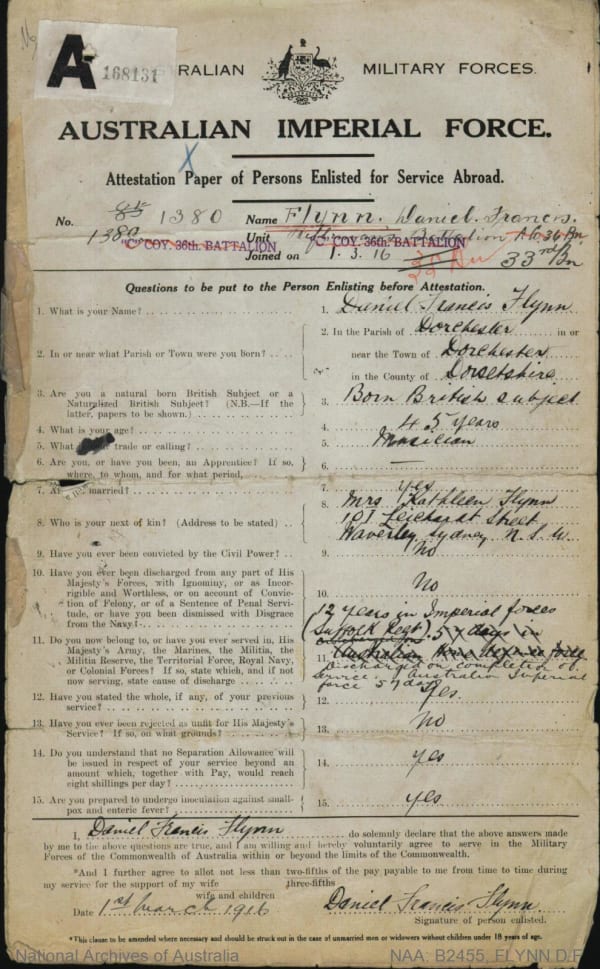 A
168131
RALIAN MILITARY FORCES.
AUSTRALIAN IMPERIAL FORCE.
Attestation Paper of Persons Enlisted for Service Abroad.
No. 1380 Name Flynn. Daniel. Francis.
1380 Unit Battalion
"C" COY. 36th. BATTALION "C" COY. 36th. BATTALION
Joined on 1.3.16 33rd Bn
Questions to be put to the Person Enlisting before Attestation.
1. What is your Name? 1. Daniel Francis Flynn
2. In or near what Parish or Town were you Born? 2. In the Parish of Dorchester in or
near the Town of Dorchester
in the County of Dorsetshire
3. Are you a natural born British Subject or a
Naturalized British Subject? (N.B.—If the
latter, papers to be shown.) 3. Born British subject
4. What is your age? 4. 45 years
5. What trade or calling? 5. Musician
6. Are you, or have you been, an Apprentice? If so,
where, to whom, and for what period, 6. —
7. married? 7. yes
8. Who is your next of kin? (Address to be stated) 8. Mrs Kathleen Flynn
101 Leichardt Street
Waverley Sydney N.S.W.
9. Have you ever been convicted by the Civil Power? 9. No
10. Have you ever been discharged from any part of His
Majesty's Forces, with Ignominy, or as Incor-
rigible and Worthless, or on account of Convic-
tion of Felony, or of a Sentence of Penal Servi-
tude, or have you been dismissed with Disgrace
from the Navy? 10. No
11. Do you now belong to, or have you ever served in, His
Majesty's Army, the Marines, the Militia, the
Militia Reserve, the Territorial Force, Royal Navy,
or Colonial Forces? If so, state which, and if not
now serving, state cause of discharge 11. 12 years in Imperial forces
(Suffolk Regt). 57 days in
Discharged on completion of
service. Australian Imperial
force 57 days
12. Have you stated the whole, if any, of your previous
service? 12. Yes
13. Have you ever been rejected as unfit for His Majesty's
Service? If so, on what grounds? 13. No
14. Do you understand that no Separation Allowance will
be issued in respect of your service beyond an
amount which, together with Pay, would reach
eight shillings per day? 14. yes
15. Are you prepared to undergo inoculation against small-
pox and enteric fever? 15. yes
I, Daniel Francis Flynn do solemnly declare that the above answers made
by me to the above questions are true, and I am willing and hereby voluntarily agree to serve in the Military
Forces of the Commonwealth of Australia within or beyond the limits of the Commonwealth.
*And I further agree to allot not less than two-fifths of the pay payable to me from time to time during
three-fifths
my service for the support of my wife
wife and children
Date 1st March 1916 Daniel Francis Flynn.
Signature of person enlisted.
*This clause to be amended where necessary and should be struck out in the case of unmarried men or widowers without children under 18 years of age.
National Archives of Australia NAA: B2455, FLYNN D F